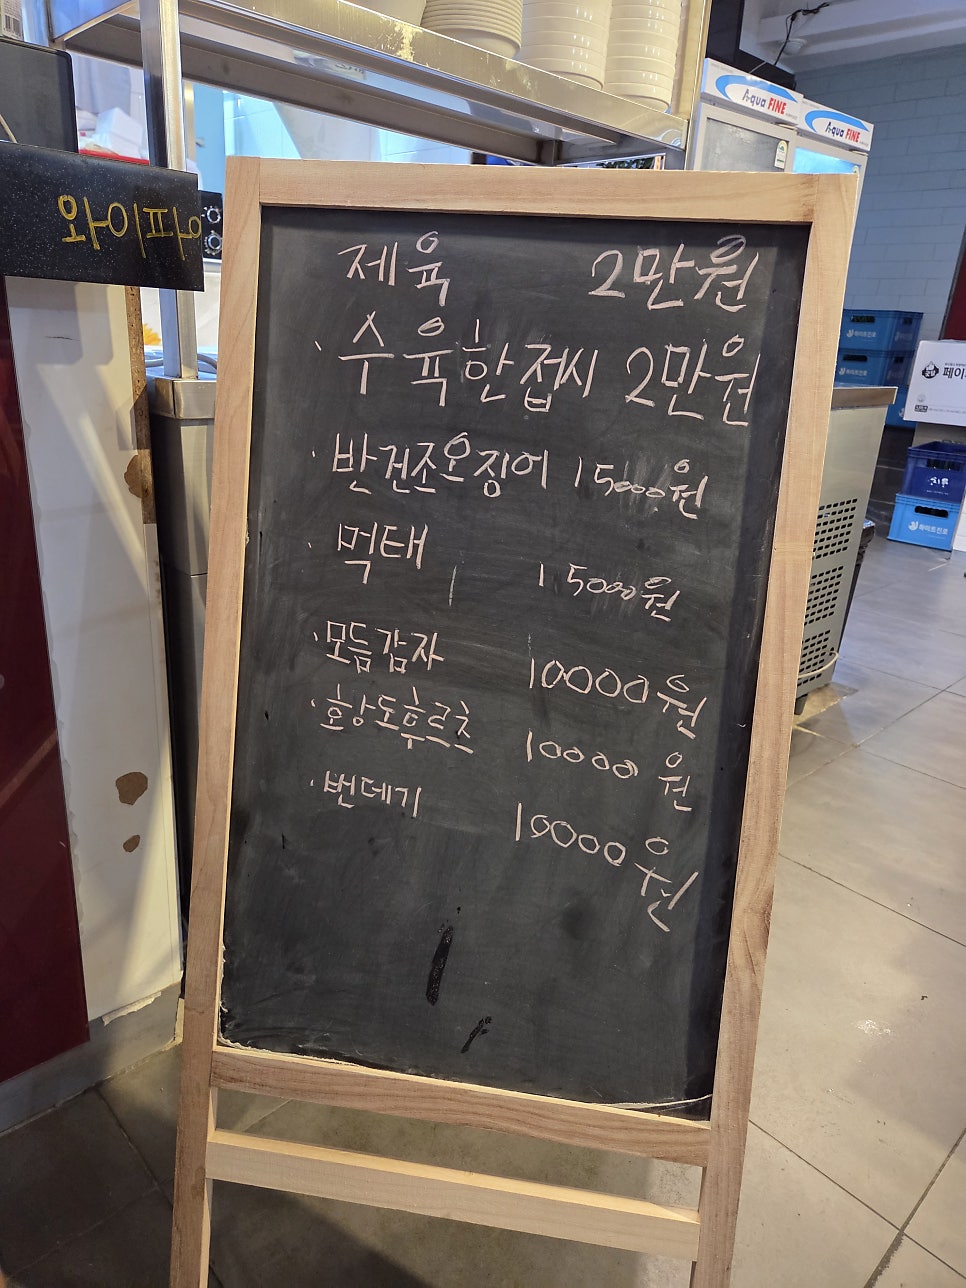 Aqua FINE
Aqua FINE
와이파이
제육 2만원
· 수육한접시 2만원
· 반건조오징어 15000원
· 먹태 15000원
· 모듬감자 10000원
· 황도후르츠 10000원
· 번데기 10000원
하이트진로
페이
하이트진로